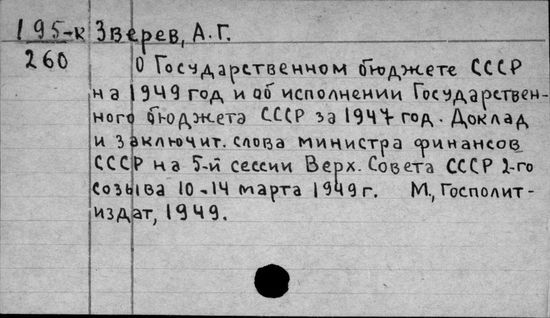 195-к Зверев, А.Г.
260
О Государственном бюджете СССР
на 1949 год и об исполнении Государствен-
ного бюджета СССР за 1947 год. Доклад
и заключит. слова министра финансов
СССР на 5-й сессии Верх. Совета СССР 2-го
созыва 10-14 марта 1949 г. М., Госполит-
издат, 1949.